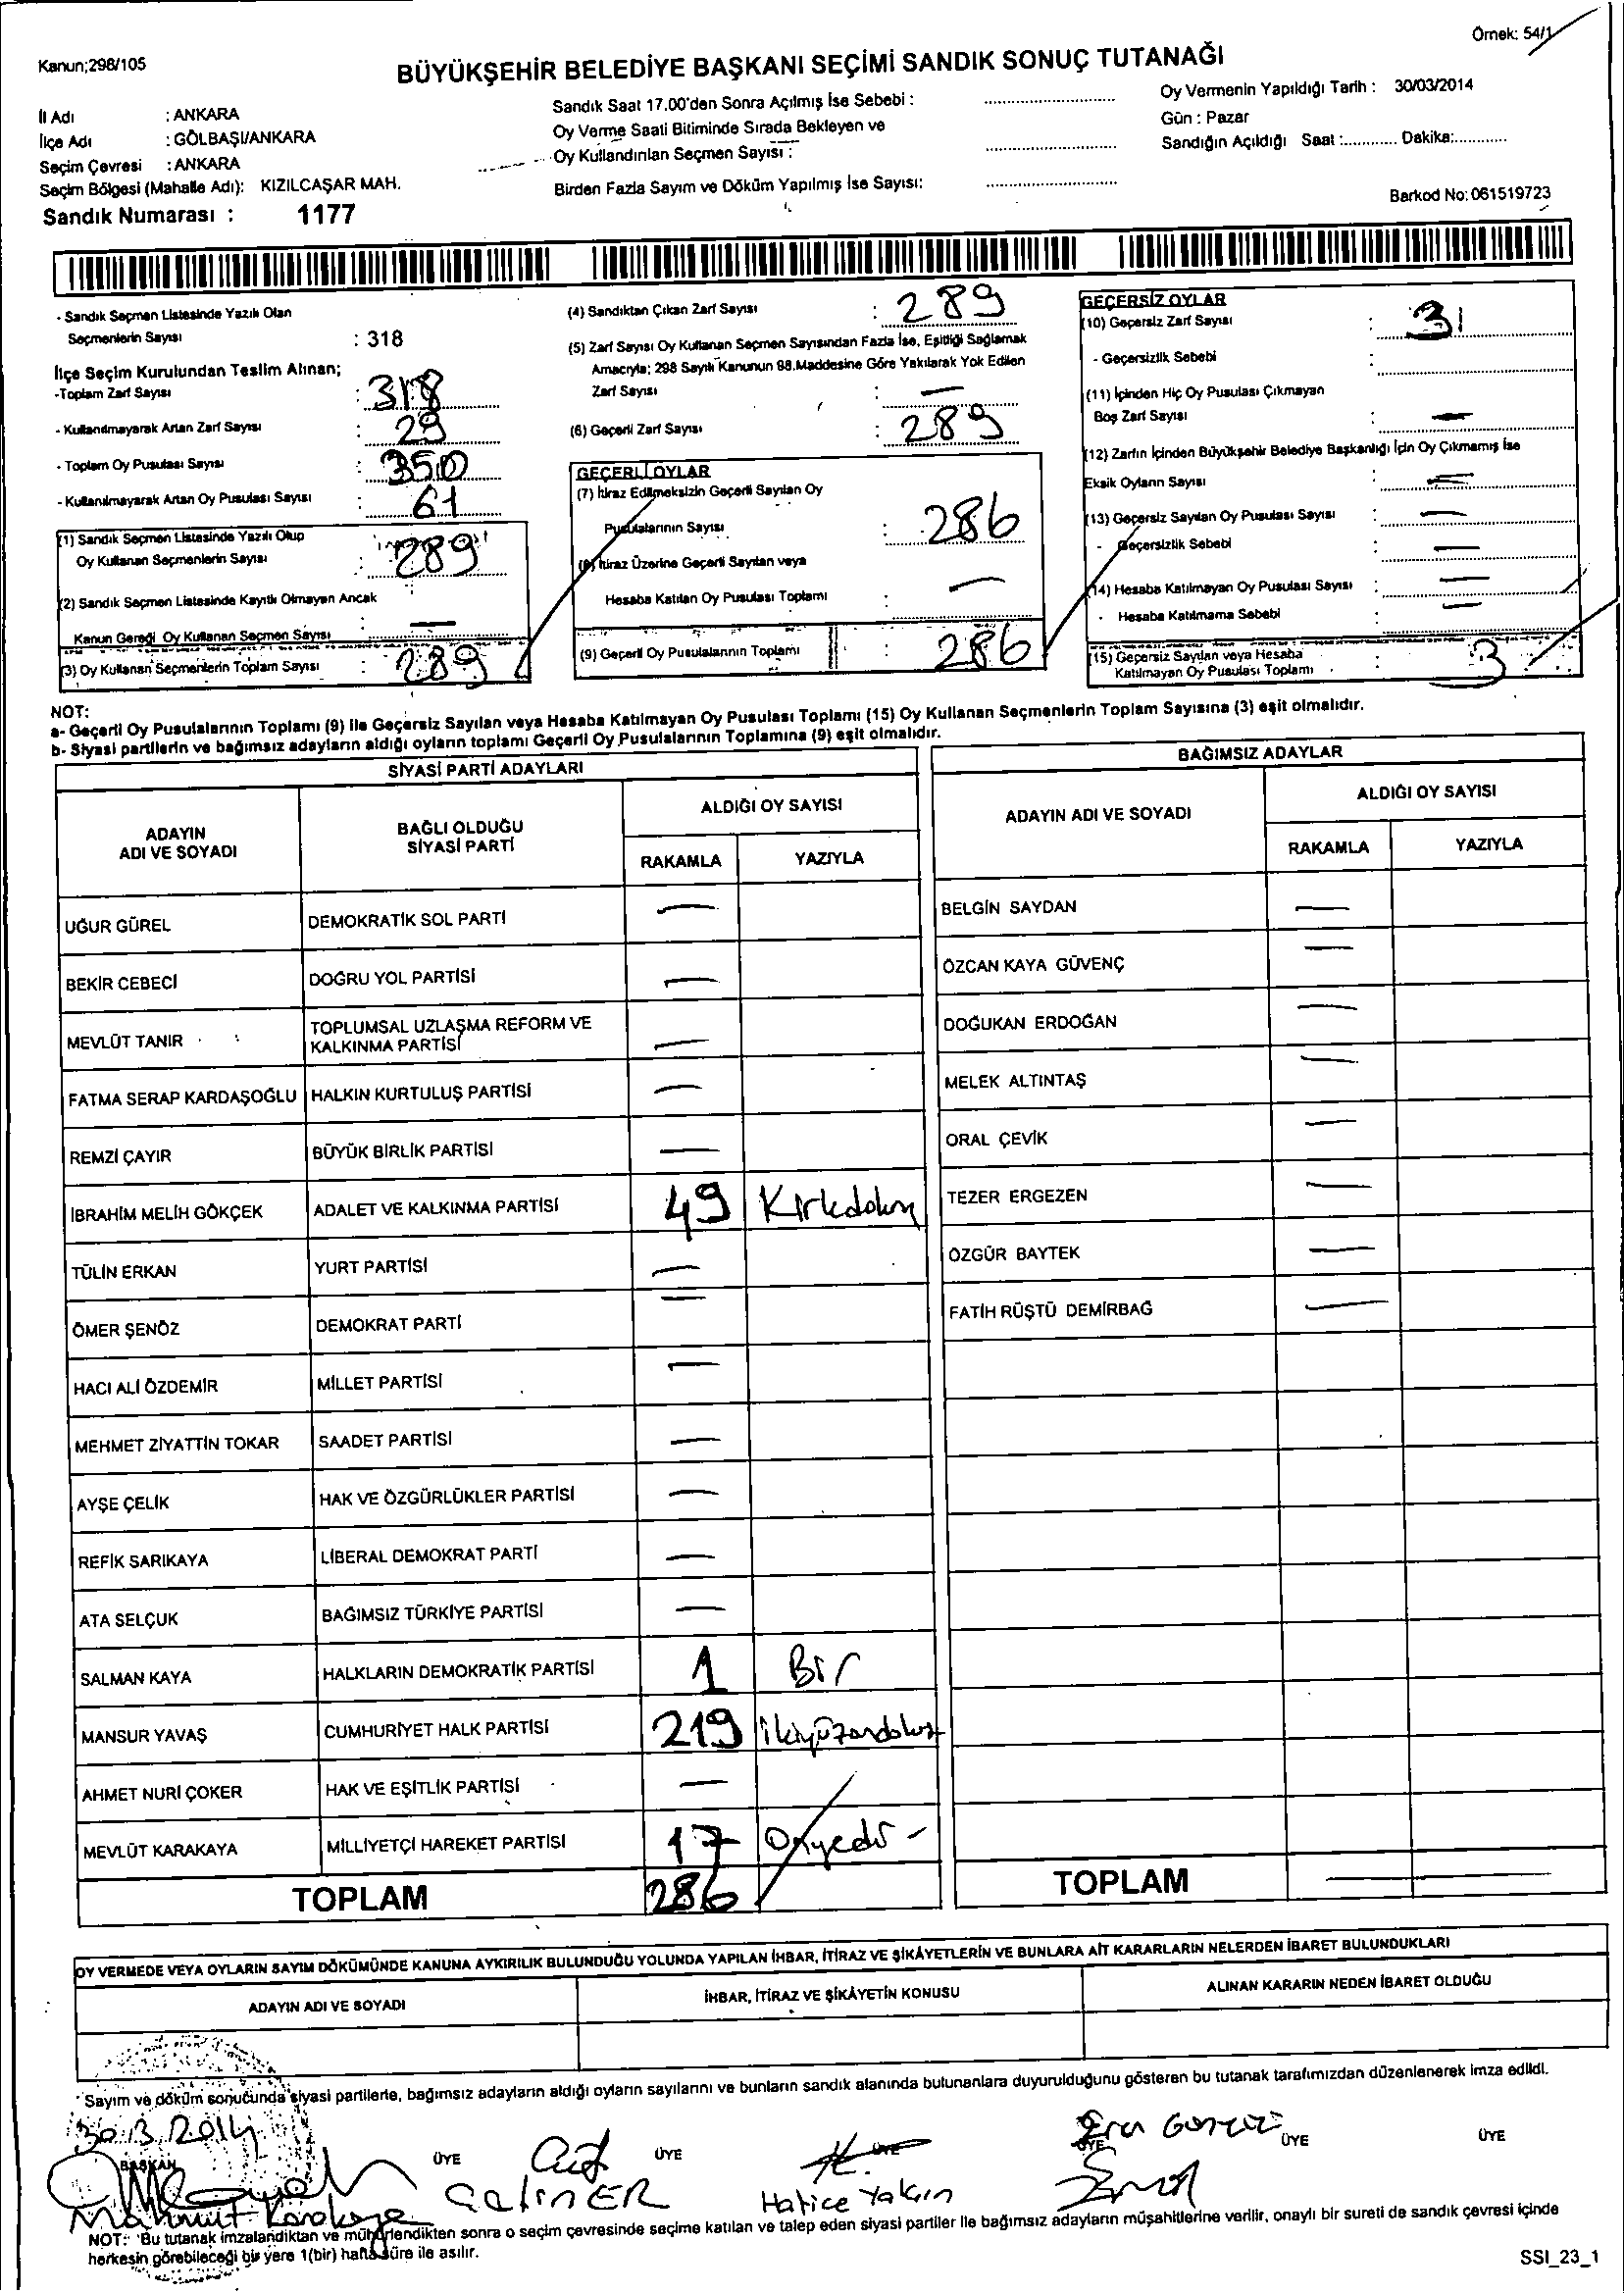 Örnek: 54/1
Kanun;298/105
BÜYÜKŞEHİR BELEDİYE BAŞKANI SEÇİMİ SANDIK SONUÇ TUTANAĞI
İl Adı : ANKARA
İlçe Adı : GÖLBAŞI/ANKARA
Seçim Çevresi : ANKARA
Seçim Bölgesi (Mahalle Adı): KIZILCAŞAR MAH.
Sandık Numarası : 1177
Sandık Saat 17.00'den Sonra Açılmış İse Sebebi :
Oy Verme Saati Bitiminde Sırada Bekleyen ve
Oy Kullandırılan Seçmen Sayısı :
Birden Fazla Sayım ve Döküm Yapılmış İse Sayısı:
Oy Vermenin Yapıldığı Tarih : 30/03/2014
Gün : Pazar
Sandığın Açıldığı Saat :............ Dakika:............
Barkod No: 061519723
- Sandık Seçmen Listesinde Yazılı Olan
Seçmenlerin Sayısı : 318
İlçe Seçim Kurulundan Teslim Alınan;
-Toplam Zarf Sayısı : 318
- Kullanılmayarak Artan Zarf Sayısı : 29
- Toplam Oy Pusulası Sayısı : 350
- Kullanılmayarak Artan Oy Pusulası Sayısı : 61
(1) Sandık Seçmen Listesinde Yazılı Olup
Oy Kullanan Seçmenlerin Sayısı : 289
(2) Sandık Seçmen Listesinde Kayıtlı Olmayan Ancak
Kanun Gereği Oy Kullanan Seçmen Sayısı —
(3) Oy Kullanan Seçmenlerin Toplam Sayısı : 289
(4) Sandıktan Çıkan Zarf Sayısı : 289
(5) Zarf Sayısı Oy Kullanan Seçmen Sayısından Fazla İse, Eşitliği Sağlamak
Amacıyla; 298 Sayılı Kanunun 98.Maddesine Göre Yakılarak Yok Edilen
Zarf Sayısı : —
(6) Geçerli Zarf Sayısı : 289
GEÇERLİ OYLAR
(7) İtiraz Edilmeksizin Geçerli Sayılan Oy
Pusulalarının Sayısı : 286
(8) İtiraz Üzerine Geçerli Sayılan veya
Hesaba Katılan Oy Pusulası Toplamı : —
(9) Geçerli Oy Pusulalarının Toplamı : 286
GEÇERSİZ OYLAR
(10) Geçersiz Zarf Sayısı : 3
- Geçersizlik Sebebi :
(11) İçinden Hiç Oy Pusulası Çıkmayan
Boş Zarf Sayısı : —
(12) Zarfın İçinden Büyükşehir Belediye Başkanlığı İçin Oy Çıkmamış İse
Eksik Oyların Sayısı : —
(13) Geçersiz Sayılan Oy Pusulası Sayısı : —
- Geçersizlik Sebebi : —
(14) Hesaba Katılmayan Oy Pusulası Sayısı : —
- Hesaba Katılmama Sebebi : —
(15) Geçersiz Sayılan veya Hesaba
Katılmayan Oy Pusulası Toplamı : 3
NOT:
a- Geçerli Oy Pusulalarının Toplamı (9) ile Geçersiz Sayılan veya Hesaba Katılmayan Oy Pusulası Toplamı (15) Oy Kullanan Seçmenlerin Toplam Sayısına (3) eşit olmalıdır.
b- Siyasi partilerin ve bağımsız adayların aldığı oyların toplamı Geçerli Oy Pusulalarının Toplamına (9) eşit olmalıdır.
SİYASİ PARTİ ADAYLARI
ADAYIN ADI VE SOYADI BAĞLI OLDUĞU SİYASİ PARTİ ALDIĞI OY SAYISI
RAKAMLA YAZIYLA
UĞUR GÜREL DEMOKRATİK SOL PARTİ —
BEKİR CEBECİ DOĞRU YOL PARTİSİ —
MEVLÜT TANIR TOPLUMSAL UZLAŞMA REFORM VE KALKINMA PARTİSİ —
FATMA SERAP KARDAŞOĞLU HALKIN KURTULUŞ PARTİSİ —
REMZİ ÇAYIR BÜYÜK BİRLİK PARTİSİ —
İBRAHİM MELİH GÖKÇEK ADALET VE KALKINMA PARTİSİ 49 Kırkdokuz
TÜLİN ERKAN YURT PARTİSİ —
ÖMER ŞENÖZ DEMOKRAT PARTİ —
HACI ALİ ÖZDEMİR MİLLET PARTİSİ —
MEHMET ZİYATTİN TOKAR SAADET PARTİSİ —
AYŞE ÇELİK HAK VE ÖZGÜRLÜKLER PARTİSİ —
REFİK SARIKAYA LİBERAL DEMOKRAT PARTİ —
ATA SELÇUK BAĞIMSIZ TÜRKİYE PARTİSİ —
SALMAN KAYA HALKLARIN DEMOKRATİK PARTİSİ 1 Bir
MANSUR YAVAŞ CUMHURİYET HALK PARTİSİ 219 ikiyüzondokuz
AHMET NURİ ÇOKER HAK VE EŞİTLİK PARTİSİ —
MEVLÜT KARAKAYA MİLLİYETÇİ HAREKET PARTİSİ 17 Onyedi -
TOPLAM 286
BAĞIMSIZ ADAYLAR
ADAYIN ADI VE SOYADI ALDIĞI OY SAYISI
RAKAMLA YAZIYLA
BELGİN SAYDAN —
ÖZCAN KAYA GÜVENÇ —
DOĞUKAN ERDOĞAN —
MELEK ALTINTAŞ —
ORAL ÇEVİK —
TEZER ERGEZEN —
ÖZGÜR BAYTEK —
FATİH RÜŞTÜ DEMİRBAĞ —
TOPLAM —
OY VERMEDE VEYA OYLARIN SAYIM DÖKÜMÜNDE KANUNA AYKIRILIK BULUNDUĞU YOLUNDA YAPILAN İHBAR, İTİRAZ VE ŞİKÂYETLERİN VE BUNLARA AİT KARARLARIN NELERDEN İBARET BULUNDUKLARI
ADAYIN ADI VE SOYADI İHBAR, İTİRAZ VE ŞİKÂYETİN KONUSU ALINAN KARARIN NEDEN İBARET OLDUĞU
Sayım ve döküm sonucunda siyasi partilerle, bağımsız adayların aldığı oyların sayılarını ve bunların sandık alanında bulunanlara duyurulduğunu gösteren bu tutanak tarafımızdan düzenlenerek imza edildi.
30.3.2014
BAŞKAN ÜYE ÜYE ÜYE ÜYE ÜYE ÜYE
Mahmut Karakaya Çetin ER Hatice Yalçın
NOT: Bu tutanak imzalandıktan ve mühürlendikten sonra o seçim çevresinde seçime katılan ve talep eden siyasi partiler ile bağımsız adayların müşahitlerine verilir, onaylı bir sureti de sandık çevresi içinde
herkesin görebileceği bir yere 1(bir) hafta süre ile asılır.
SSI_23_1